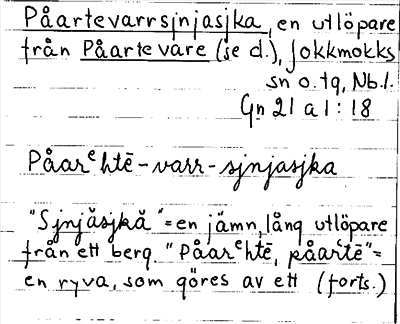 Påartevarrsjnjasjka, en utlöpare
från Påartevare (se d.), Jokkmokks
sn o. tg, Nb.l.
Gn 21 a 1:18
Påarᵉhtē-varr-sjnjasjka
"Sjnjăsjkă" = en jämn, lång utlöpare
från ett berg. "Påarᵉhtē, påartē" =
en ryva, som göres av ett (forts.)